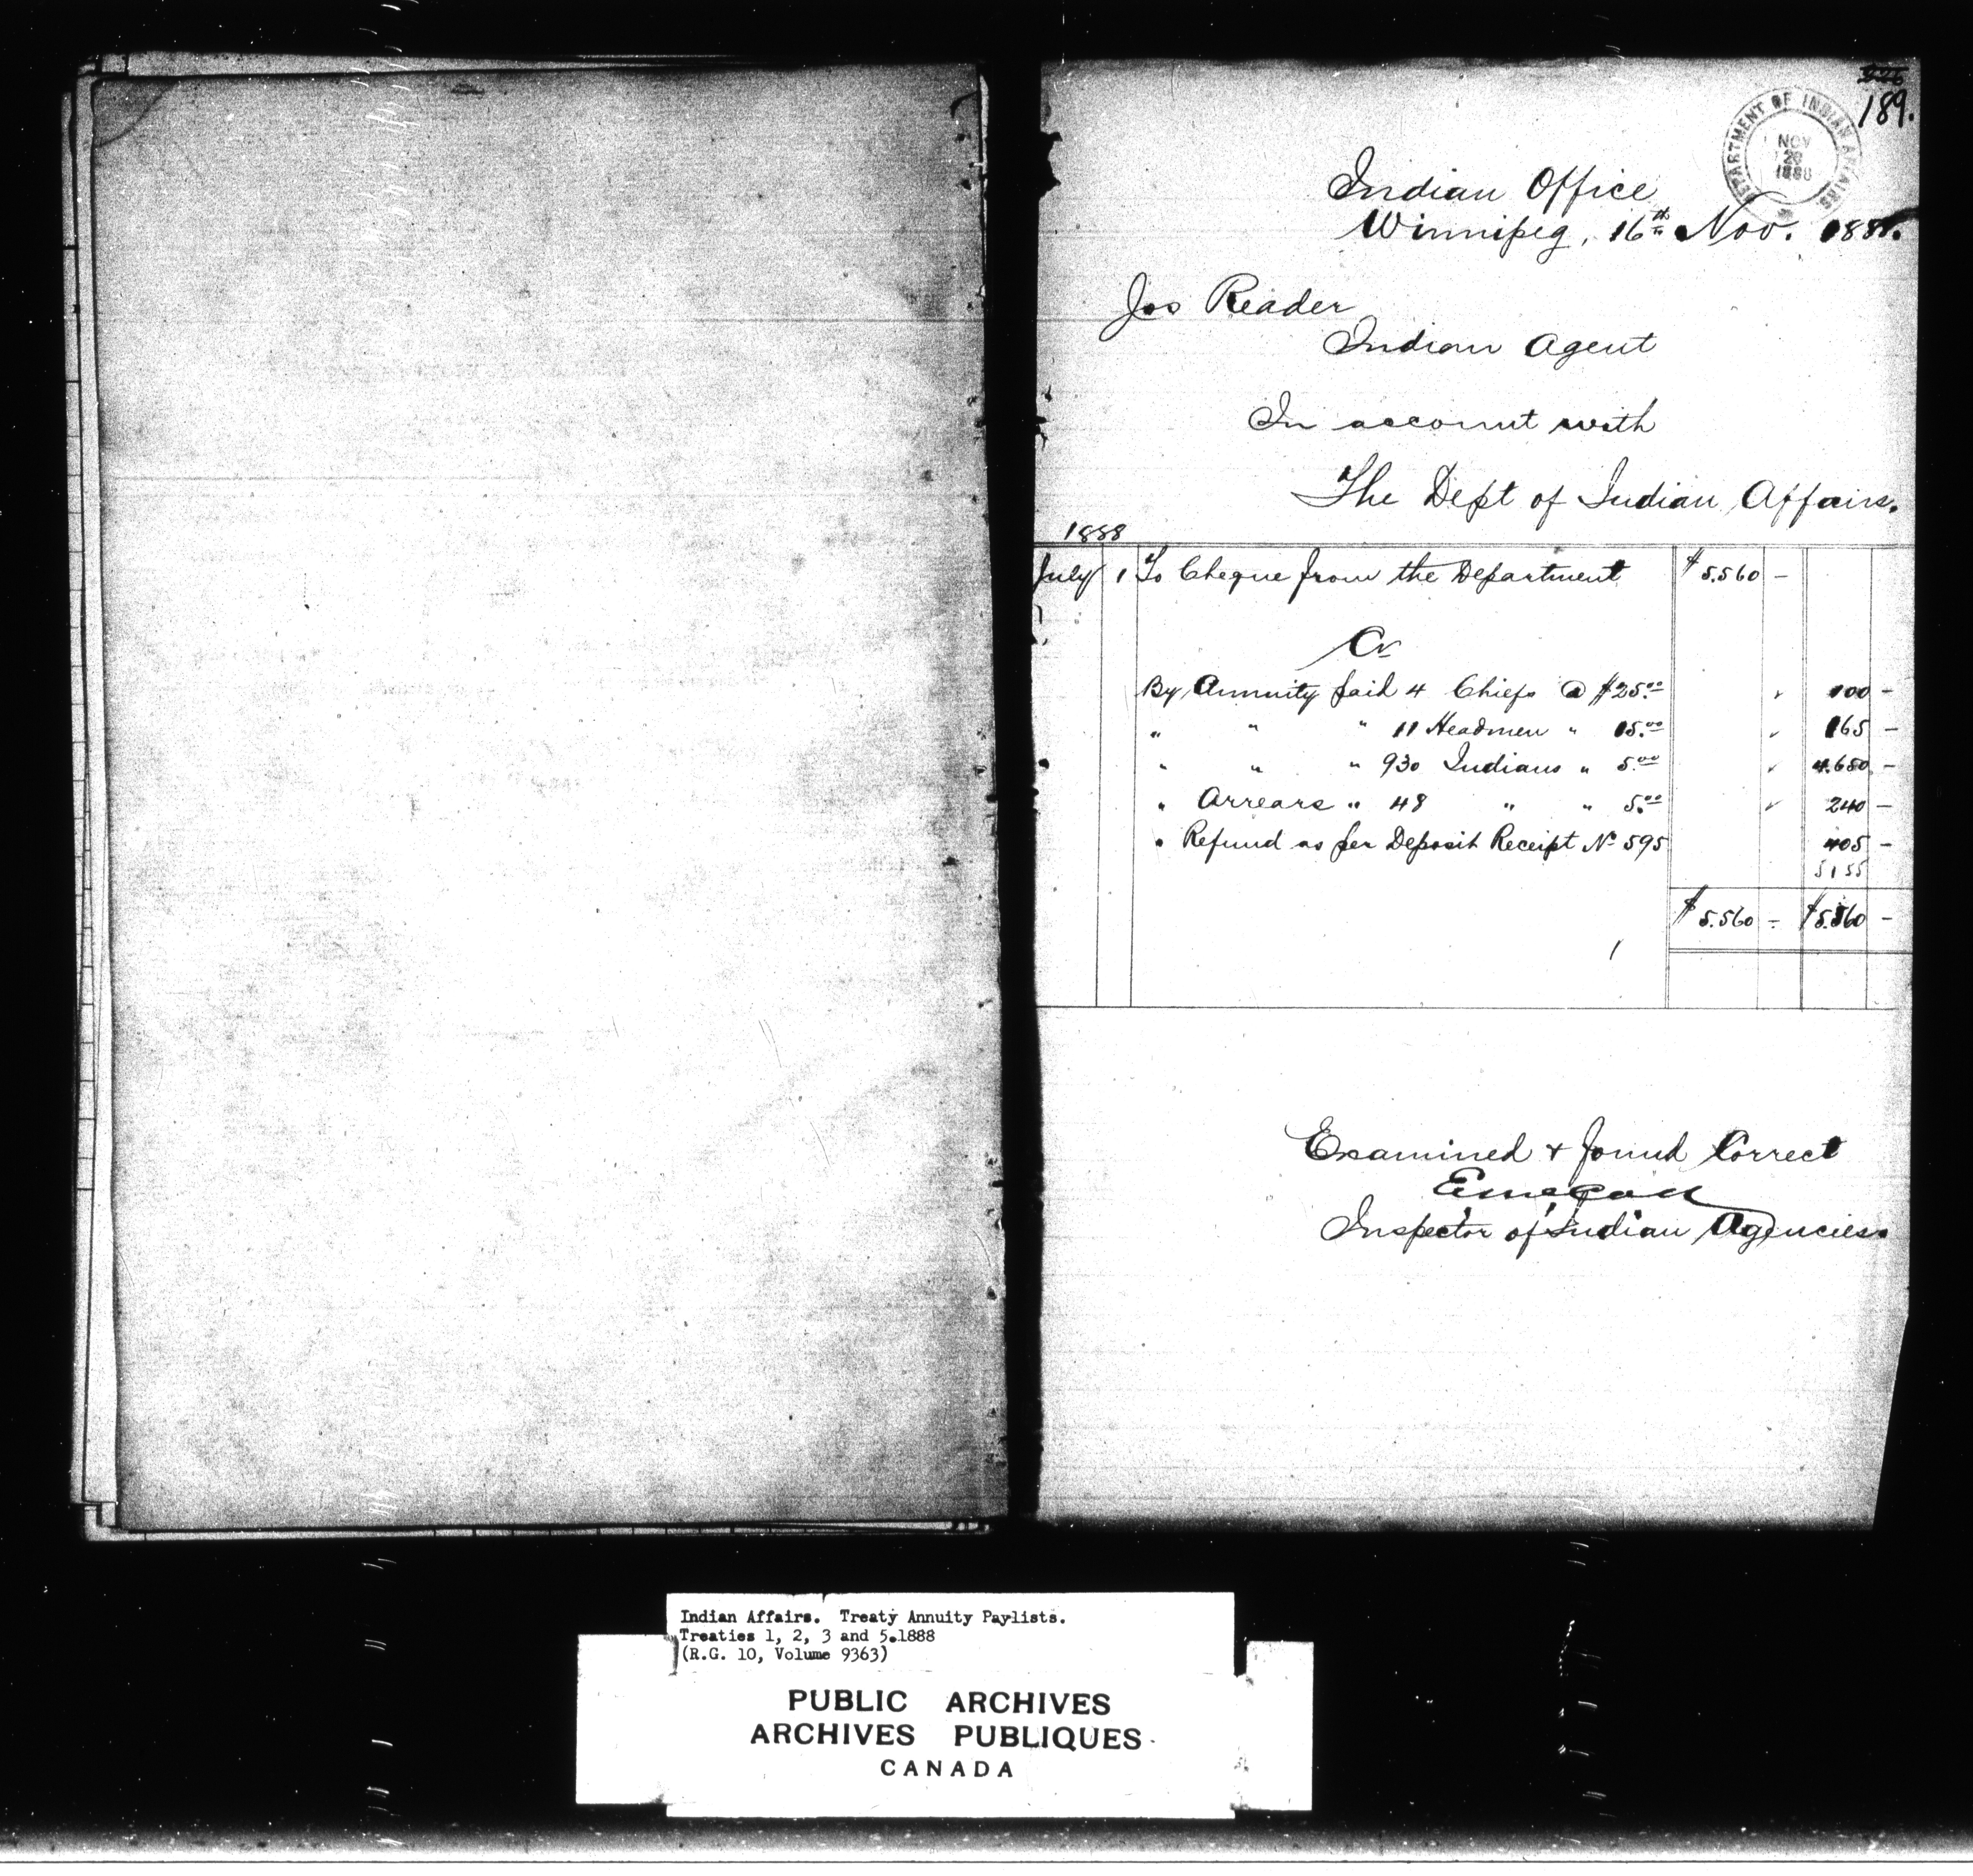 189.
DEPARTMENT OF INDIAN AFFAIRS
NOV
26
1888
Indian Office
Winnipeg, 16th Nov. 1888.
Jos Reader
Indian Agent
In account with
The Dept of Indian Affairs.
1888
July 1 To Cheque from the Department $5.560 –
Cr
By Annuity paid 4 Chiefs @ $25.00 ✓ 100 –
" " " 11 Headmen " 15.00 ✓ 165 –
" " " 930 Indians " 5.00 ✓ 4.650 –
" Arrears " 48 " " 5.00 ✓ 240 –
" Refund as per Deposit Receipt No 595 405 –
5155
$5.560 – $5.560 –
Examined & found Correct
Inspector of Indian Agencies.
Indian Affairs. Treaty Annuity Paylists.
Treaties 1, 2, 3 and 5.1888
(R.G. 10, Volume 9363)
PUBLIC ARCHIVES
ARCHIVES PUBLIQUES
CANADA